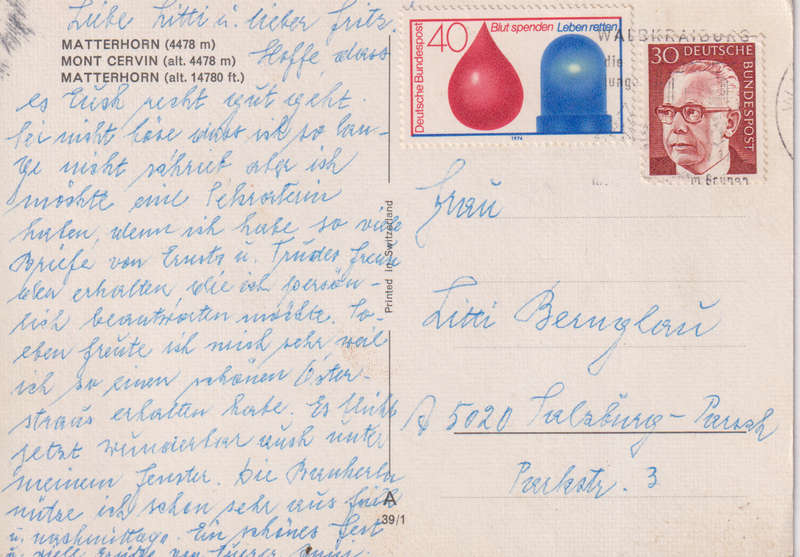 Liebe Litti u. lieber Fritz.
MATTERHORN (4478 m)
MONT CERVIN (alt. 4478 m)
MATTERHORN (alt. 14780 ft.)
Hoffe dass
es Euch recht gut geht.
Sei nicht böse dass ich so lan-
ge nicht schrieb aber ich
möchte eine
haben, denn ich habe so viele
Briefe von Ernsts u. Trudes
erhalten die ich persön-
lich beantworten möchte. So-
eben freute ich mich sehr weil
ich so einen schönen Oster-
straus erhalten habe. Es blüht
jetzt wunderbar auch unter
meinem Fenster. Die
nütze ich schon sehr aus früh
u. nachmittags. Ein schönes Fest
u. viele Grüße von Euerer
Printed in Switzerland
A
39/1
Deutsche Bundespost
40
Blut spenden Leben retten
1974
WALDKRAIBURG
die
30 DEUTSCHE
BUNDESPOST
Frau
Litti Bernglau
A 5020 Salzburg-Parsch
Parkstr. 3